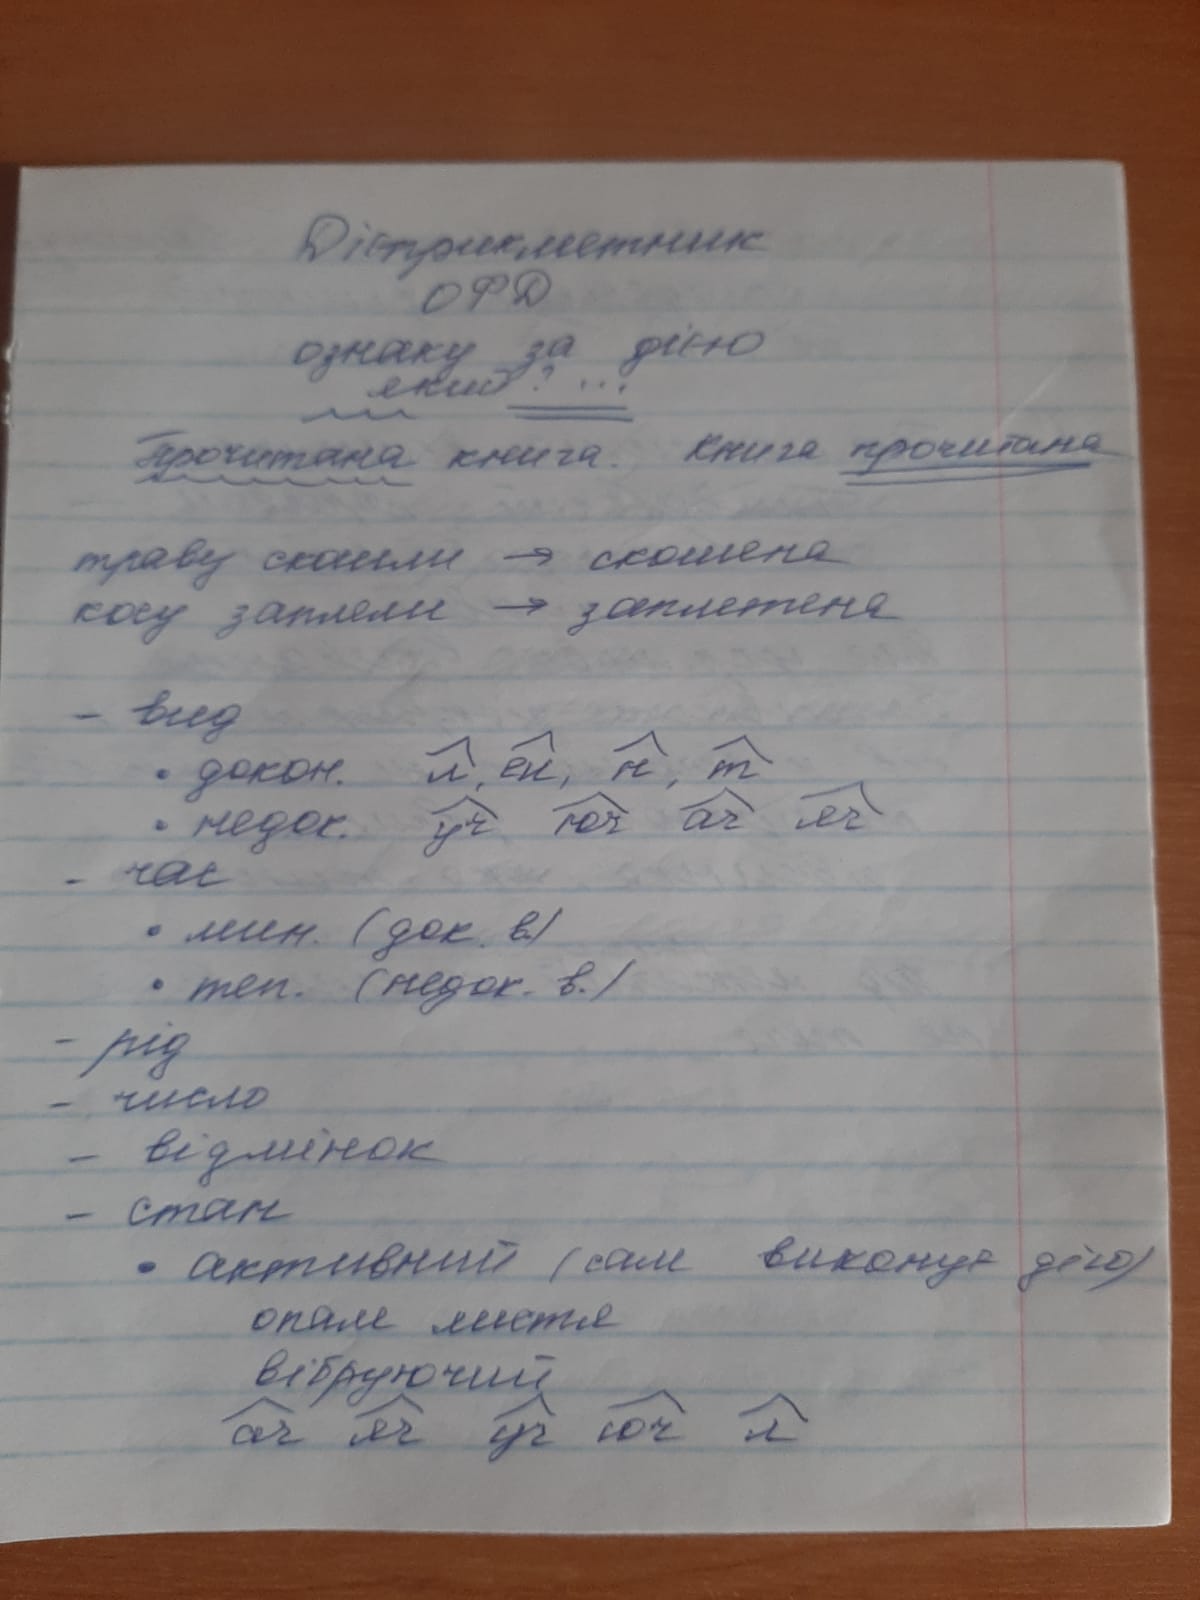 Дієприкметник
ОФД
ознаку за дією
який? ...
Прочитана книга. Книга прочитана
траву скосили → скошена
косу заплели → заплетена
- вид
• докон. л, ен, н, т
• недок. уч юч ач яч
- час
• мин. (док. в.)
• теп. (недок. в.)
- рід
- число
- відмінок
- стан
• активний (сам виконує дію)
опале листя
вібруючий
ач яч уч юч л